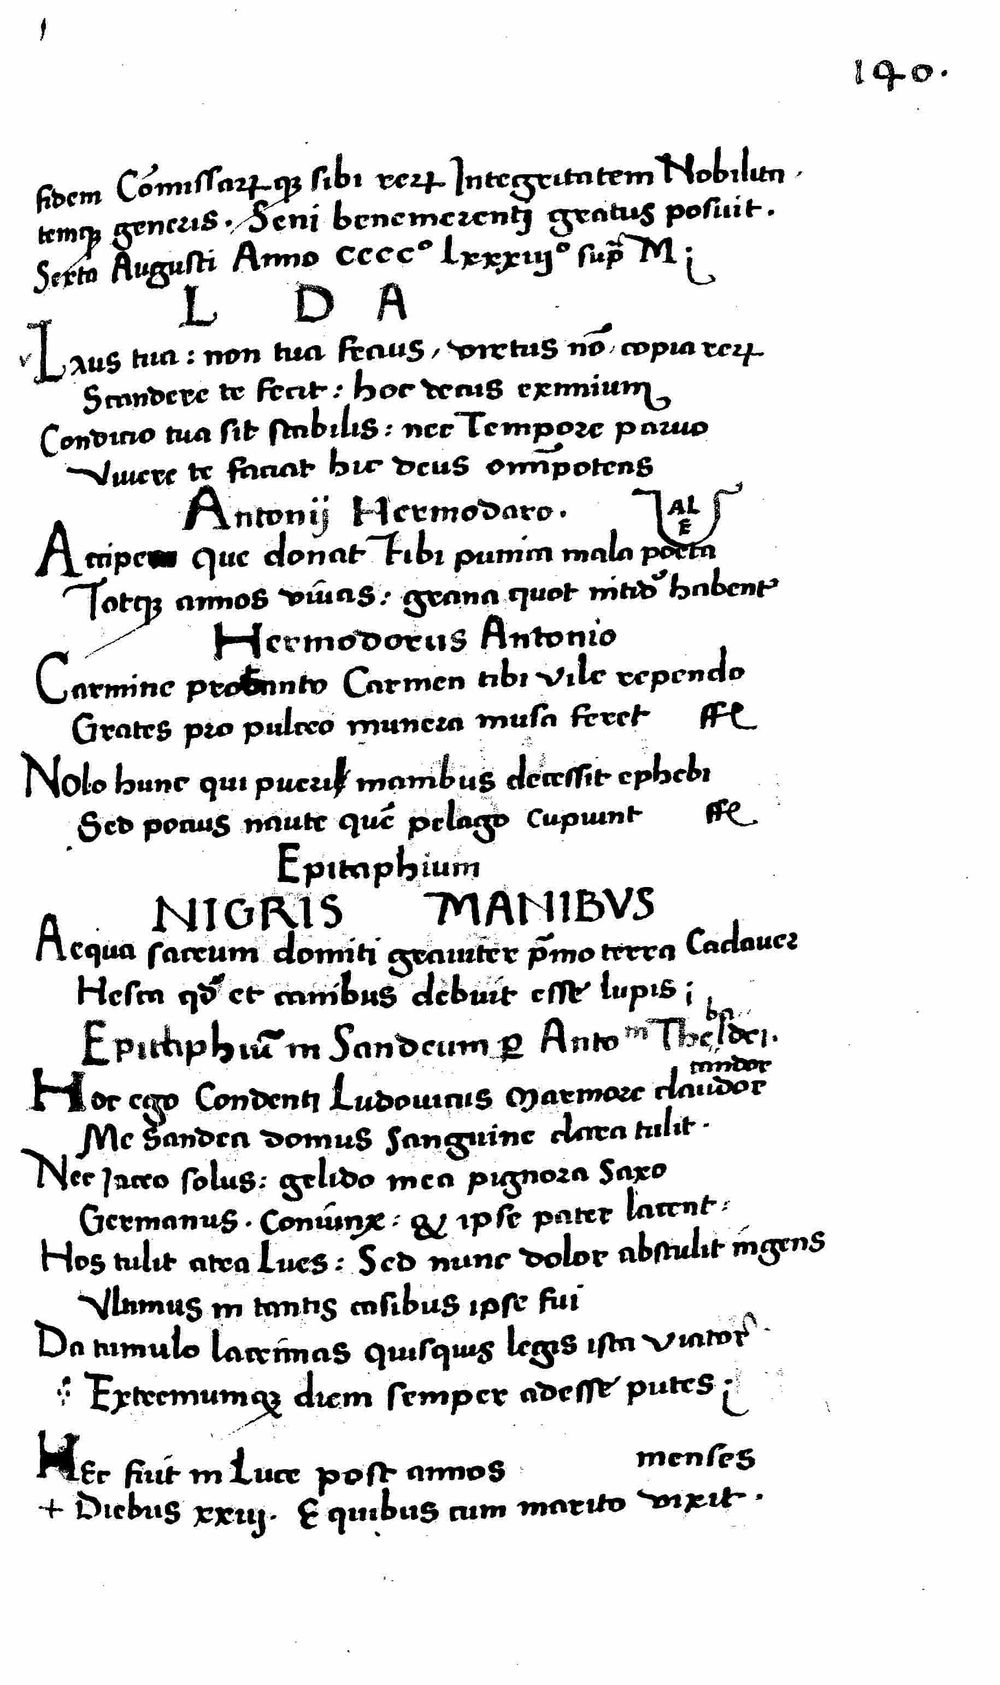 140.
fidem Cōmissarꝝqꝫ sibi rerꝝ Integritatem Nobilita
temqꝫ generis. Seni benemerentj gratus posuit.
Sexto Augusti Anno CCCCº Lxxxiijº sup̄ M;
L D A
Laus tua: non tua fecaus, virtus nō, copia rerꝝ
Scandere te fecit: hoc decus eximium
Condicio tua sit stabilis: nec Tempore paruo
Viuere te faciat hic deus omīpotens
Antonij Hermodoro.
AL
E
Accipe que donat Tibi punica mala poeta
Totqꝫ annos viuas: grana quot nitidꝰ habent
Hermodorus Antonio
Carmine probanto Carmen tibi vile rependo
Grates pro pulcro munera musa feret
Nolo hunc qui puerilj manibus decessit ephebi
Sed pocius naute quē pelago cupiunt
Epitaphium
NIGRIS MANIBVS
Aequa sacrum domiti grauiter p̄mo terra Cadauer
Hesca qd̄ et canibus debuit esse lupis;
Epitaphiū in Sandeum ꝑ Antoᵐ Thebaldei.
candor
Hoc ego Condenti Ludouicus Marmore claudor
Me Sandea domus Sanguine clara tulit.
Nec Jaceo solus: gelido mea pignora Saxo
Germanus. Coniūnx: & ipse pater latent:
Hos tulit atra Lues: Sed nunc dolor abstulit ingens
Vltimus in tantis casibus ipse fui
Da tumulo lacrimas quisquis legis ista viator
Extremumqꝫ diem semper adesse putes;
HEc fuit in Luce post annos menses
+ Diebus xxiij. E quibus cum marito vixit.